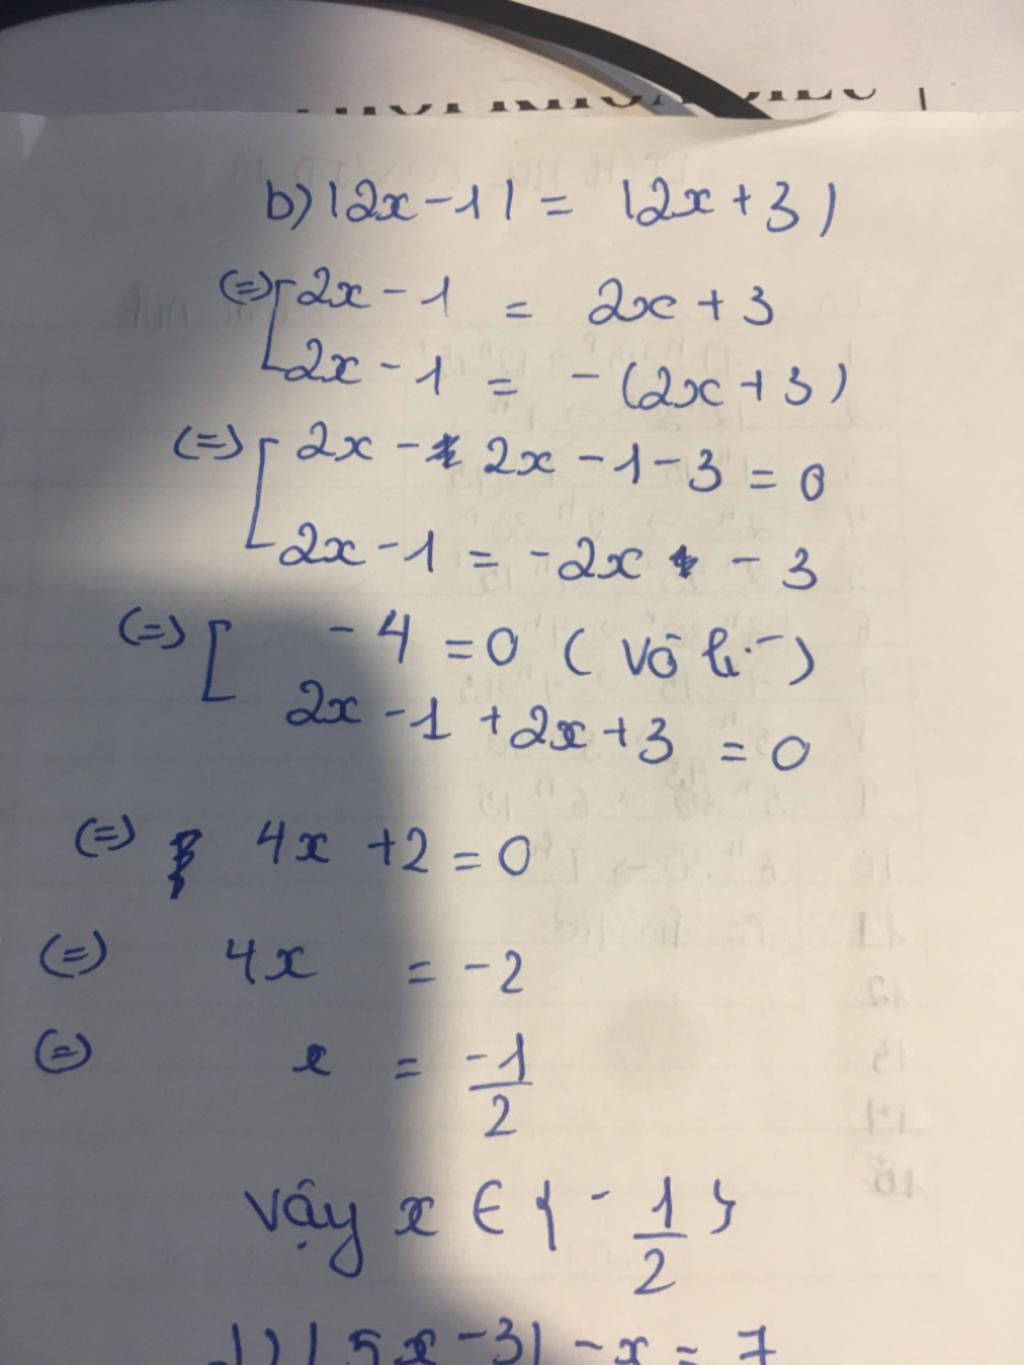 b) |2x - 1| = |2x + 3|
(=) [ 2x - 1 = 2x + 3
2x - 1 = - (2x + 3)
(=) [ 2x - 2x - 1 - 3 = 0
2x - 1 = -2x - 3
(=) [ - 4 = 0 ( vô lí )
2x - 1 + 2x + 3 = 0
(=) 4x + 2 = 0
(=) 4x = -2
(=) x = -1/2
Vậy x ∈ { - 1/2 }
d) | 5x - 3| - x = 7